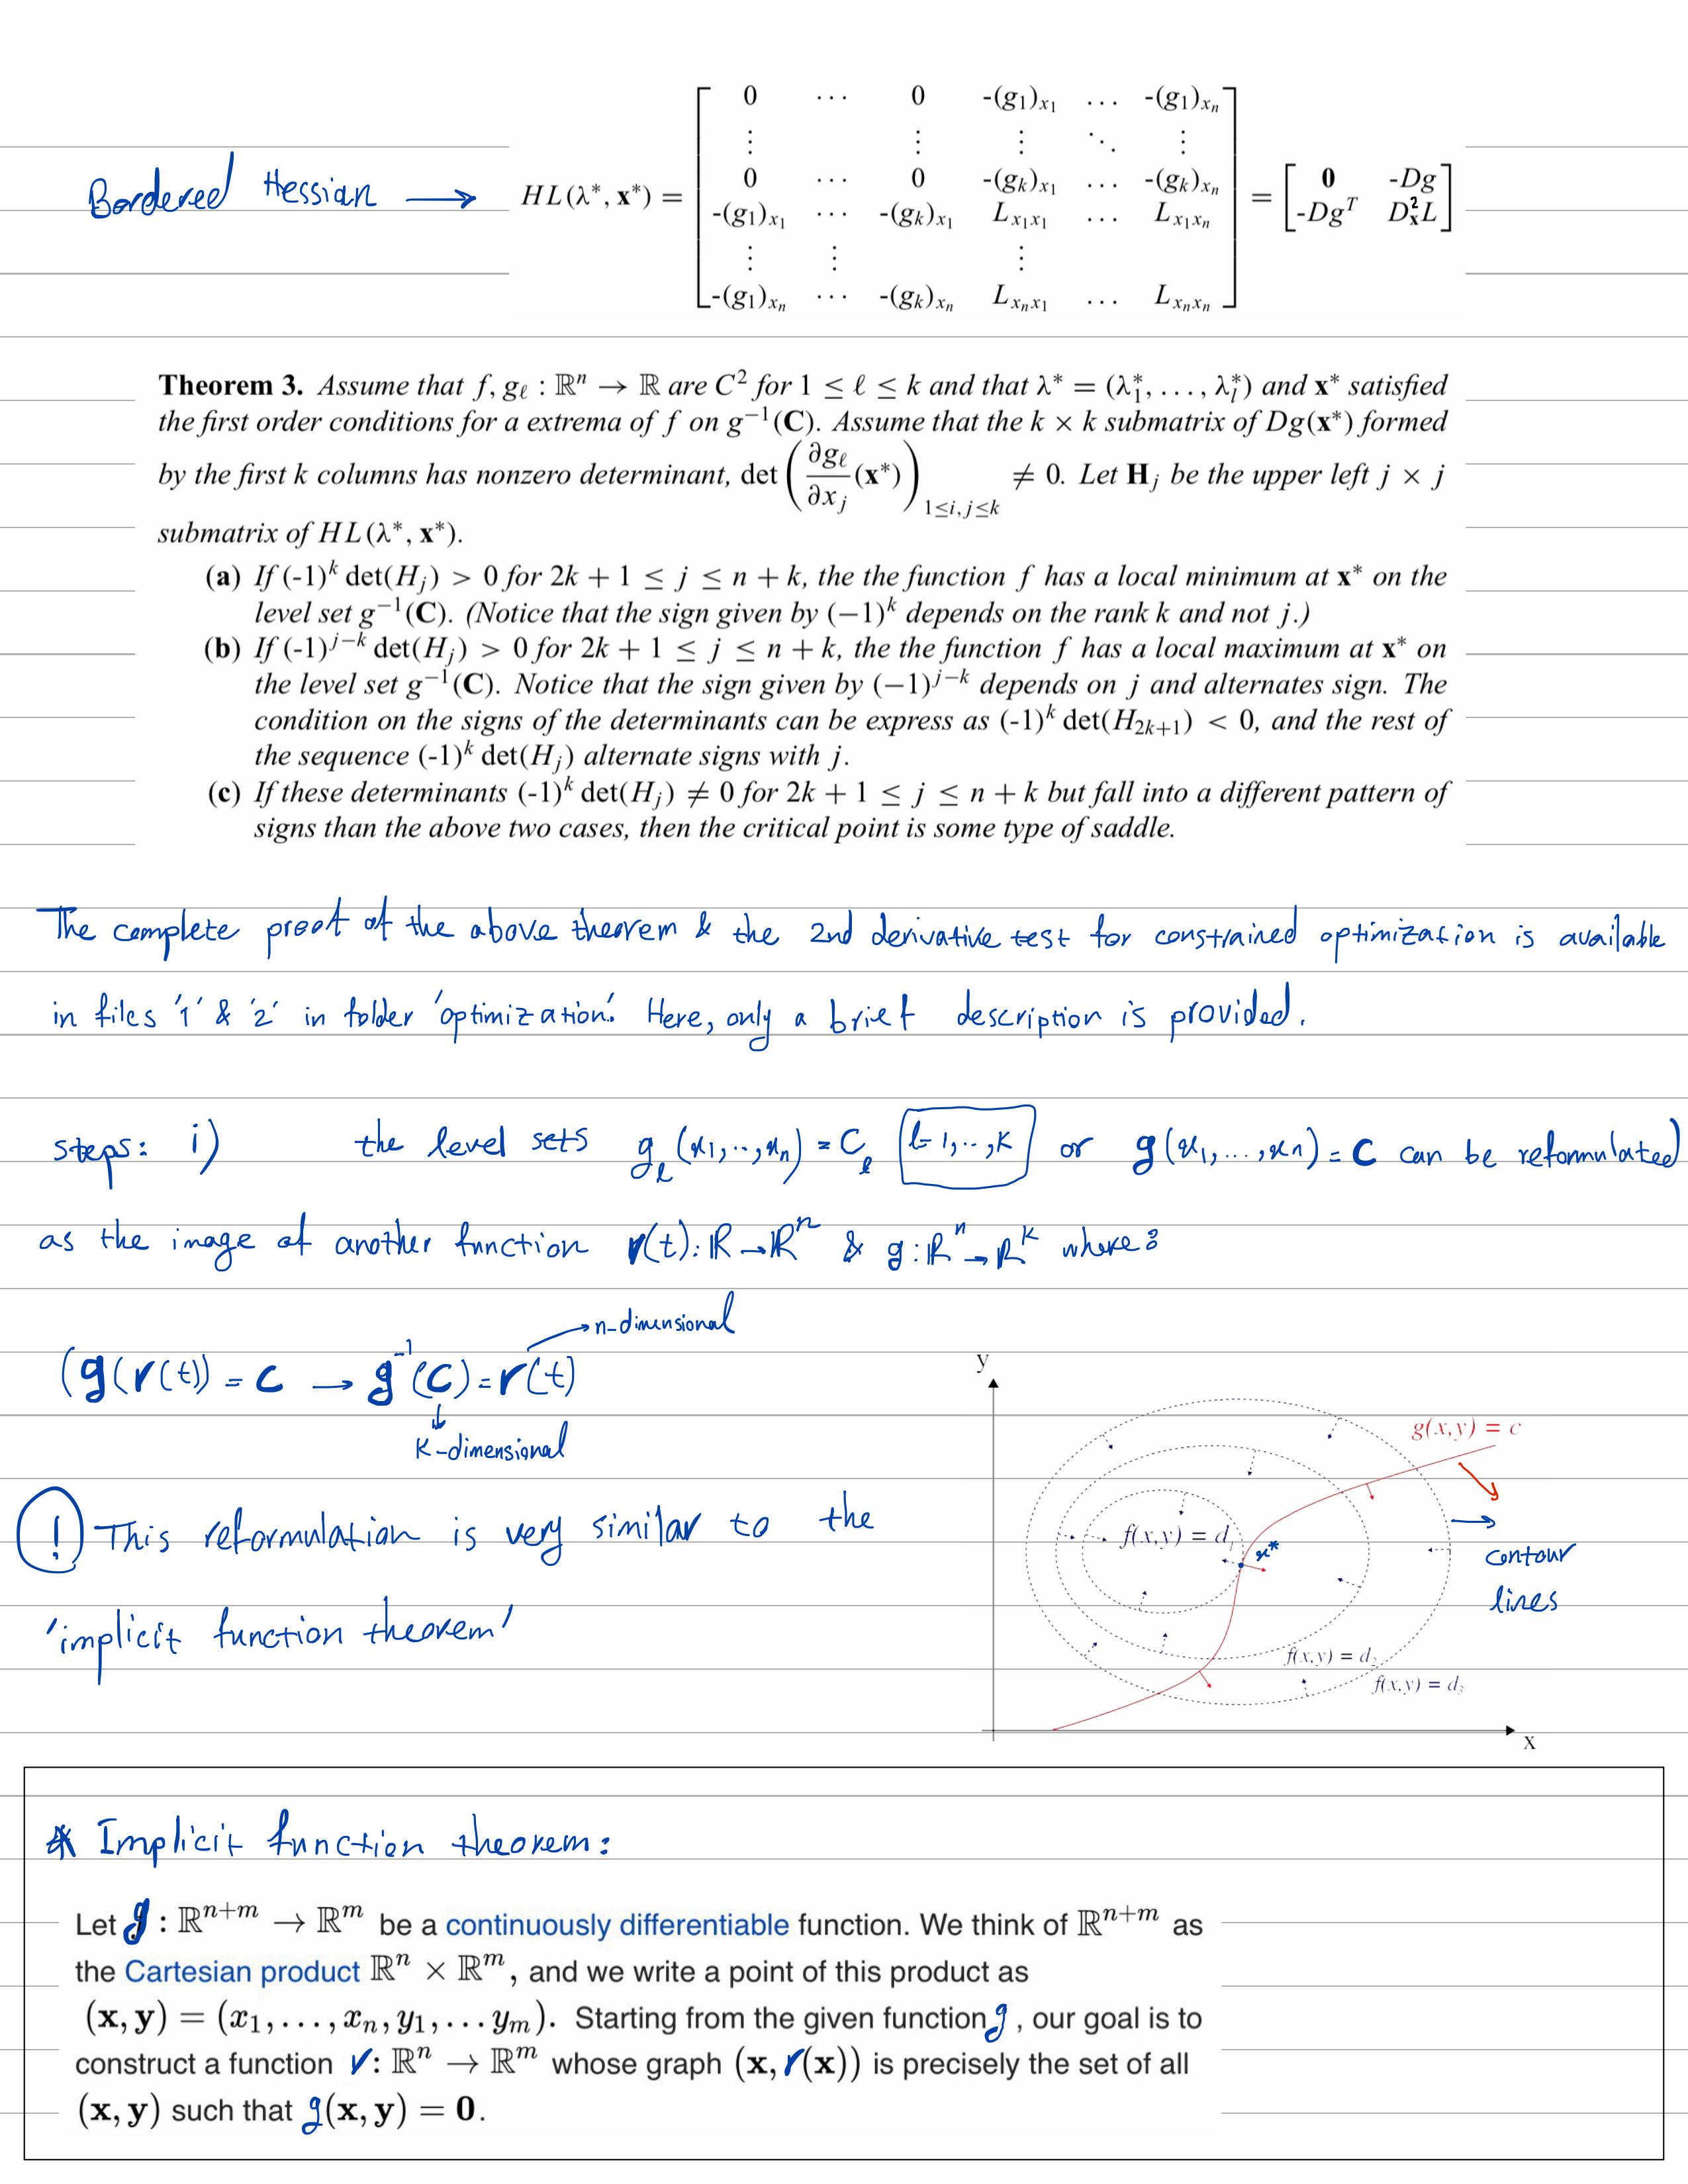 Bordered Hessian → HL(λ*, x*) = [ 0 ⋯ 0 -(g₁)ₓ₁ … -(g₁)ₓₙ
⋮ ⋮ ⋮ ⋱ ⋮
0 ⋯ 0 -(gₖ)ₓ₁ … -(gₖ)ₓₙ
-(g₁)ₓ₁ ⋯ -(gₖ)ₓ₁ Lₓ₁ₓ₁ … Lₓ₁ₓₙ
⋮ ⋮ ⋮
-(g₁)ₓₙ ⋯ -(gₖ)ₓₙ Lₓₙₓ₁ … Lₓₙₓₙ ] = [ 0 -Dg
-Dgᵀ D²ₓL ]
Theorem 3. Assume that f, gℓ : ℝⁿ → ℝ are C² for 1 ≤ ℓ ≤ k and that λ* = (λ₁*, …, λₗ*) and x* satisfied
the first order conditions for a extrema of f on g⁻¹(C). Assume that the k × k submatrix of Dg(x*) formed
by the first k columns has nonzero determinant, det (∂gℓ/∂xⱼ (x*))₁≤i,j≤k ≠ 0. Let Hⱼ be the upper left j × j
submatrix of HL(λ*, x*).
(a) If (-1)ᵏ det(Hⱼ) > 0 for 2k + 1 ≤ j ≤ n + k, the the function f has a local minimum at x* on the
level set g⁻¹(C). (Notice that the sign given by (−1)ᵏ depends on the rank k and not j.)
(b) If (-1)ʲ⁻ᵏ det(Hⱼ) > 0 for 2k + 1 ≤ j ≤ n + k, the the function f has a local maximum at x* on
the level set g⁻¹(C). Notice that the sign given by (−1)ʲ⁻ᵏ depends on j and alternates sign. The
condition on the signs of the determinants can be express as (-1)ᵏ det(H₂ₖ₊₁) < 0, and the rest of
the sequence (-1)ᵏ det(Hⱼ) alternate signs with j.
(c) If these determinants (-1)ᵏ det(Hⱼ) ≠ 0 for 2k + 1 ≤ j ≤ n + k but fall into a different pattern of
signs than the above two cases, then the critical point is some type of saddle.
The complete proof of the above theorem & the 2nd derivative test for constrained optimization is available
in files '1' & '2' in folder 'optimization'. Here, only a brief description is provided.
steps: i) the level sets gℓ(x₁,..,xₙ) = Cℓ l=1,..,K or g(x₁,...,xₙ) = C can be reformulated
as the image of another function r(t): ℝ→ℝⁿ & g: ℝⁿ→ℝᴷ where:
n-dimensional
(g(r(t)) = C → g⁻¹(C) = r(t)
K-dimensional
y
g(x,y) = c
f(x,y) = d₁
x*
contour
lines
f(x,y) = d₂
f(x,y) = d₃
x
! This reformulation is very similar to the
'implicit function theorem'
* Implicit function theorem:
Let g : ℝⁿ⁺ᵐ → ℝᵐ be a continuously differentiable function. We think of ℝⁿ⁺ᵐ as
the Cartesian product ℝⁿ × ℝᵐ, and we write a point of this product as
(x, y) = (x₁, …, xₙ, y₁, … yₘ). Starting from the given function g, our goal is to
construct a function r : ℝⁿ → ℝᵐ whose graph (x, r(x)) is precisely the set of all
(x, y) such that g(x, y) = 0.